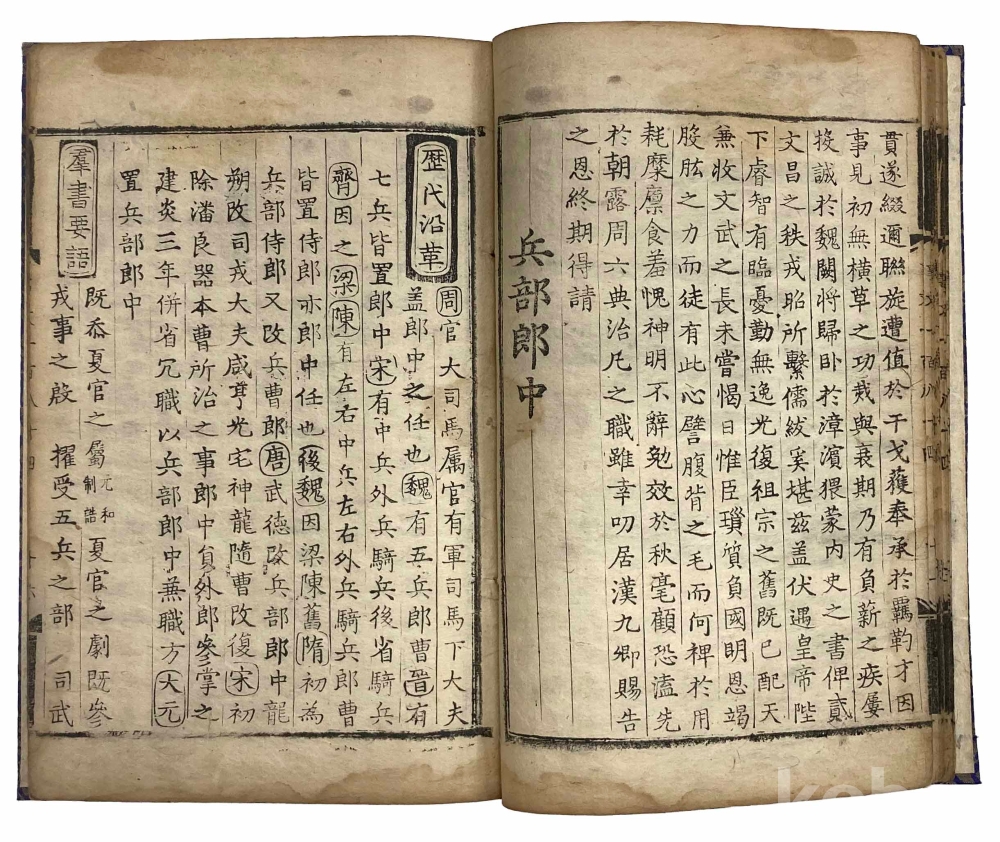 貫遂綴邇聯旋遭值於干戈獲奉承於羈靮才因
事見初無橫草之功戝與衰期乃有負薪之疾屢
披誠於魏闕將歸卧於漳濱猥蒙內史之書俾貳
文昌之秩戎昭所繫儒紱奚堪兹盖伏遇皇帝陛
下睿智有臨憂勤無逸光復祖宗之舊既已配天
兼收文武之長未嘗愒日惟臣瑣質負國明恩竭
股肱之力而徒有此心譬腹背之毛而何裨於用
耗縻廪食羞愧神明不辭勉效於秋毫顧恐溘先
於朝露周六典治凡之職雖幸叨居漢九卿賜告
之恩終期得請
兵部郎中
歷代沿革
周官大司馬属官有軍司馬下大夫
盖郎中之任也魏有五兵郎曹晉有
七兵皆置郎中宋有中兵外兵騎兵後省騎兵
齊因之梁陳有左右中兵左右外兵騎兵郎曹
皆置侍郎亦郎中任也後魏因梁陳舊隋初為
兵部侍郎又改兵曹郎唐武德改兵部郎中龍
朔改司戎大夫咸亨光宅神龍隨曹改復宋初
除潘良器本曹所治之事郎中負外郎參掌之
建炎三年併省冗職以兵部郎中兼職方大元
置兵部郎中
羣書要語
既忝夏官之屬元和制誥夏官之劇既參
戎事之啟 擢受五兵之部 司武